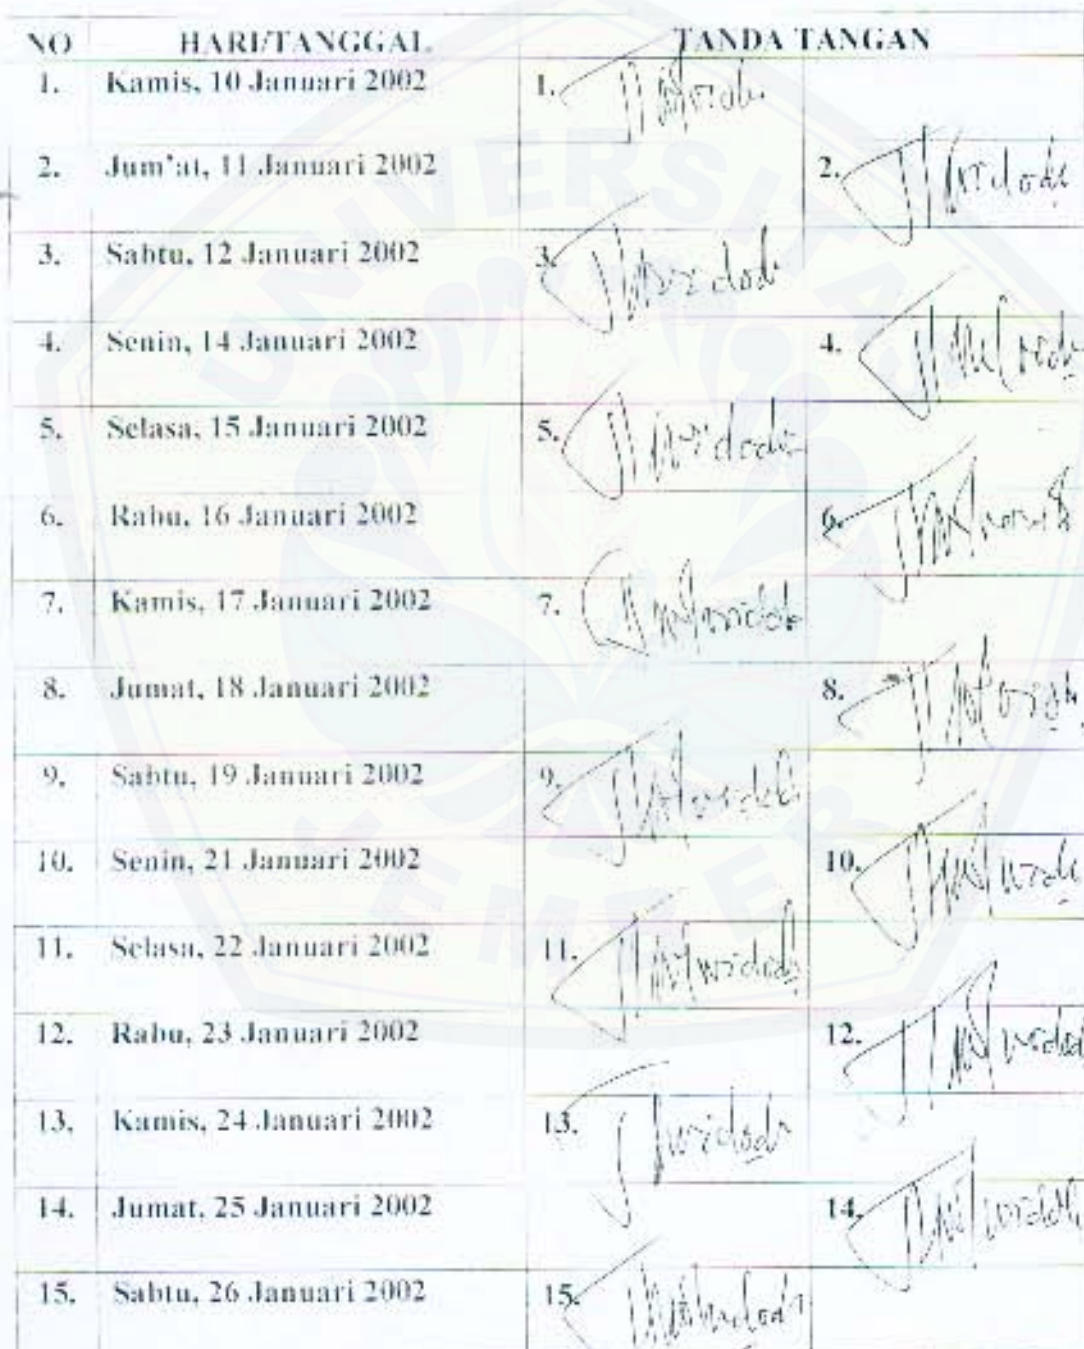 UNIVERSITAS
JEMBER
NO HARI/TANGGAL TANDA TANGAN
1. Kamis, 10 Januari 2002 1.
2. Jum'at, 11 Januari 2002 2.
3. Sabtu, 12 Januari 2002 3.
4. Senin, 14 Januari 2002 4.
5. Selasa, 15 Januari 2002 5.
6. Rabu, 16 Januari 2002 6.
7. Kamis, 17 Januari 2002 7.
8. Jumat, 18 Januari 2002 8.
9. Sabtu, 19 Januari 2002 9.
10. Senin, 21 Januari 2002 10.
11. Selasa, 22 Januari 2002 11.
12. Rabu, 23 Januari 2002 12.
13. Kamis, 24 Januari 2002 13.
14. Jumat, 25 Januari 2002 14.
15. Sabtu, 26 Januari 2002 15.